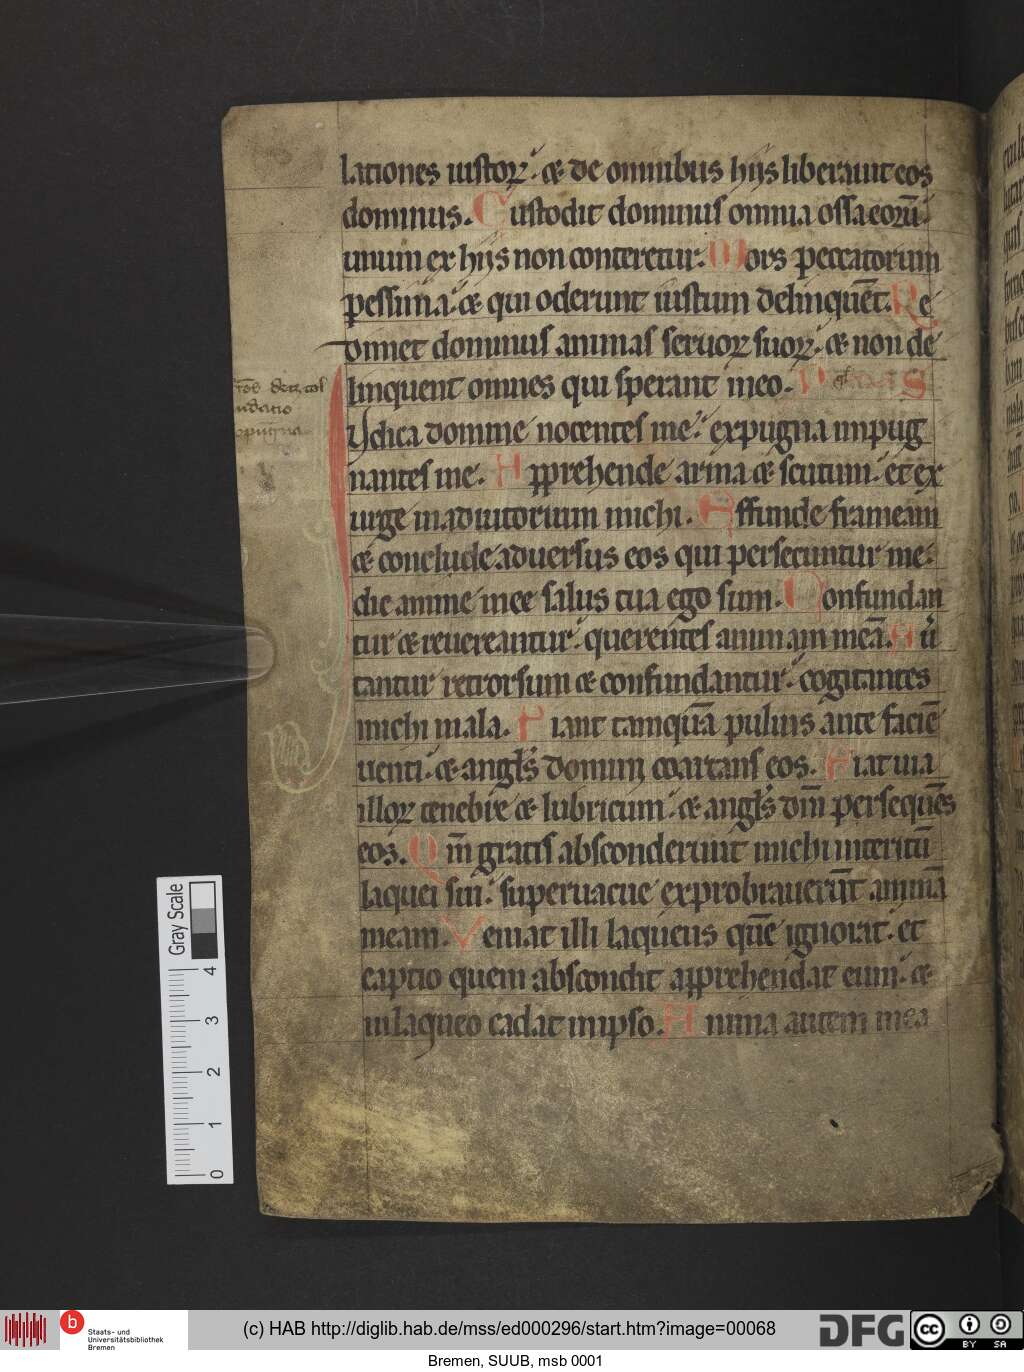 lationes iustoꝝ. ⁊ de omnibus hijs liberauit eos
dominus. Custodit dominus omnia ossa eorū.
unum ex hijs non conteretur. Mors peccatorum
pessima. ⁊ qui oderunt iustum delinquēt. Re
dimet dominus animas seruoꝝ suoꝝ. ⁊ non de
linquent omnes qui sperant in eo.
Iudica domine nocentes me. expugna inpug
nantes me. Apprehende arma ⁊ scutum. et ex
urge in adiutorium michi. Effunde frameam
⁊ conclude aduersus eos qui persecuntur me.
dic anime mee salus tua ego sum. Confundan
tur ⁊ reuereantur. querentes animam meā. Au̇
tantur retrorsum ⁊ confundantur. cogitantes
michi mala. Fiant tamquā puluis ante faciē
uenti. ⁊ angls domini coartans eos. Fiat uia
illoꝝ tenebre ⁊ lubricum. ⁊ angls dm̄ persequēs
eos. Qm̄ gratis absconderunt michi interitū
laquei sui. superuacue exprobrauerūt animā
meam. Veniat illi laqueus quē ignorat. et
captio quem abscondit apprehendat eum. ⁊
in laqueo cadat in ipso. Anima autem mea
Gray Scale
4
3
2
1
0
b
Staats- und
Universitätsbibliothek
Bremen
(c) HAB http://diglib.hab.de/mss/ed000296/start.htm?image=00068
DFG
cc
BY SA
Bremen, SUUB, msb 0001